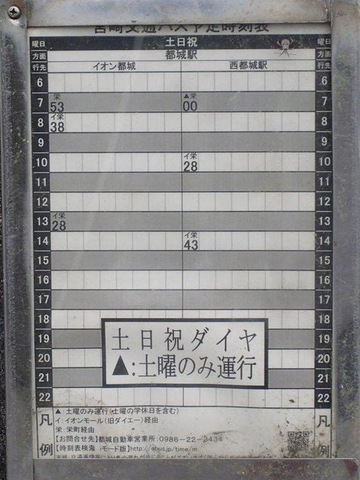 宮崎交通バスや定時刻表
曜日 土日祝
方面 都城駅
行先 イオン都城 西都城駅
6
7 栄 53 ▲栄 00
8 イ栄 38
9
10 イ栄 28
11
12
13 イ栄 28
14 イ栄 43
15
16
17
18
19
20
21
22
土日祝ダイヤ
▲:土曜のみ運行
凡例
▲ 土曜のみ運行(土曜の学休日を含む)
イ: イオンモール(旧ダイエー) 経由
栄: 栄町経由
【お問合せ先】都城自動車営業所:0986-22-3434
【時刻表検索 iモード版】